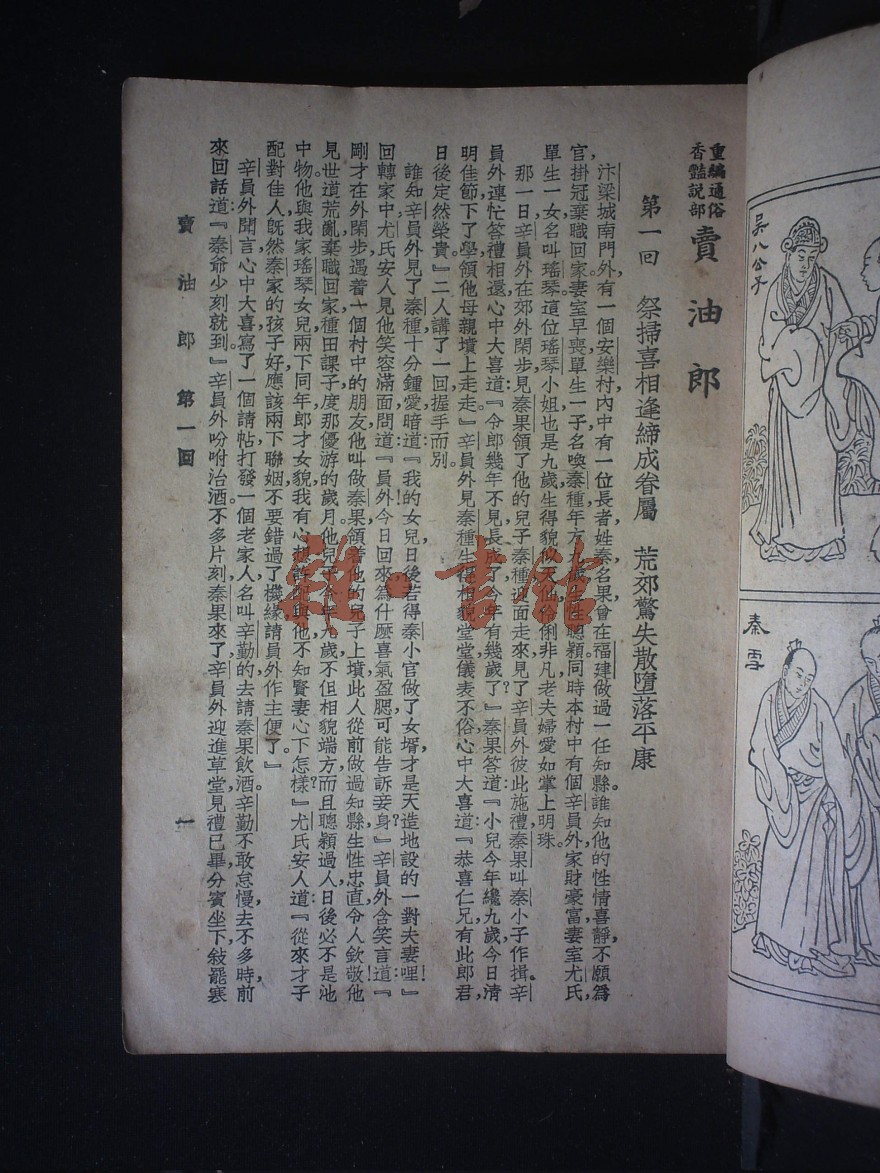 重編通俗
香豔說部
賣油郎
第一回　祭掃喜相逢締成眷屬　荒郊驚失散墮落平康
汴梁城南門外,有一個安樂村,內中有一位長者,姓秦名果,曾在福建做過一任知縣。誰知他的性情喜靜,不願爲
官,掛冠棄職回家。妻室早喪,單生一子,名喚秦種,年方九歲,生性聰穎。同時本村中有個辛員外,家財豪富,妻室尤氏,
單生一女,名叫瑤琴。這位瑤琴小姐,也是九歲,生得貌似天仙,伶俐非凡,老夫婦愛如掌上明珠。
那一日,辛員外在郊外閑步,見秦果領了他的兒子秦種,迎面走來,見了辛員外,彼此施禮,秦果叫秦小子作揖。辛
員外連忙答禮相還,心中大喜道:『令郎幾年不見,長成了,今年有幾歲了?』秦果答道:『小兒今年纔九歲,今日清
明佳節,下了學,領他母親墳上走走。』辛員外見秦種生得相貌堂堂,儀表不俗,心中大喜道:『恭喜仁兄有此郎君,
日後定然榮貴。』二人講了一回,握手而別。
誰知辛員外見了秦種,十分鍾愛,暗道:『我的女兒,日後若得秦小官做了女壻,才是天造地設的一對夫妻哩!』
回轉家中,尤氏安人見他笑容滿面,問道:『員外今日回來,爲什麼喜氣盈腮,可能告訴妾身?』辛員外含笑言道:『
剛才在外閑步,遇着一個村中的朋友,他叫做秦果,領着他的兒子上墳,此人從前做過知縣,生性忠直,令人欽敬,他
見世道荒亂,棄職回家,種田課子,度那優游的歲月。他兒子今年九歲,不但相貌端方,而且聰穎過人,日後必不是池
中物,他與我家瑤琴女兒,兩下同年,郎才女貌,我有心想許配與他,不知賢妻心下怎樣?』尤氏安人道:『從來才子
配對佳人,既然秦家的孩子好,應該兩下聯姻,不要錯過了機緣,請員外作主便了。』
辛員外聞言,心中大喜,寫了一個請帖,打發一個老家人,名叫辛勤的,去請秦果飲酒。辛勤不敢怠慢,去不多時,前
來回話道:『秦爺少刻就到。』辛員外吩咐治酒。不多片刻,秦果來了,辛員外迎進草堂,見禮已畢,分賓坐下,敍罷寒
賣油郎　第一回　一
吳八公子
秦雪
雜·書館